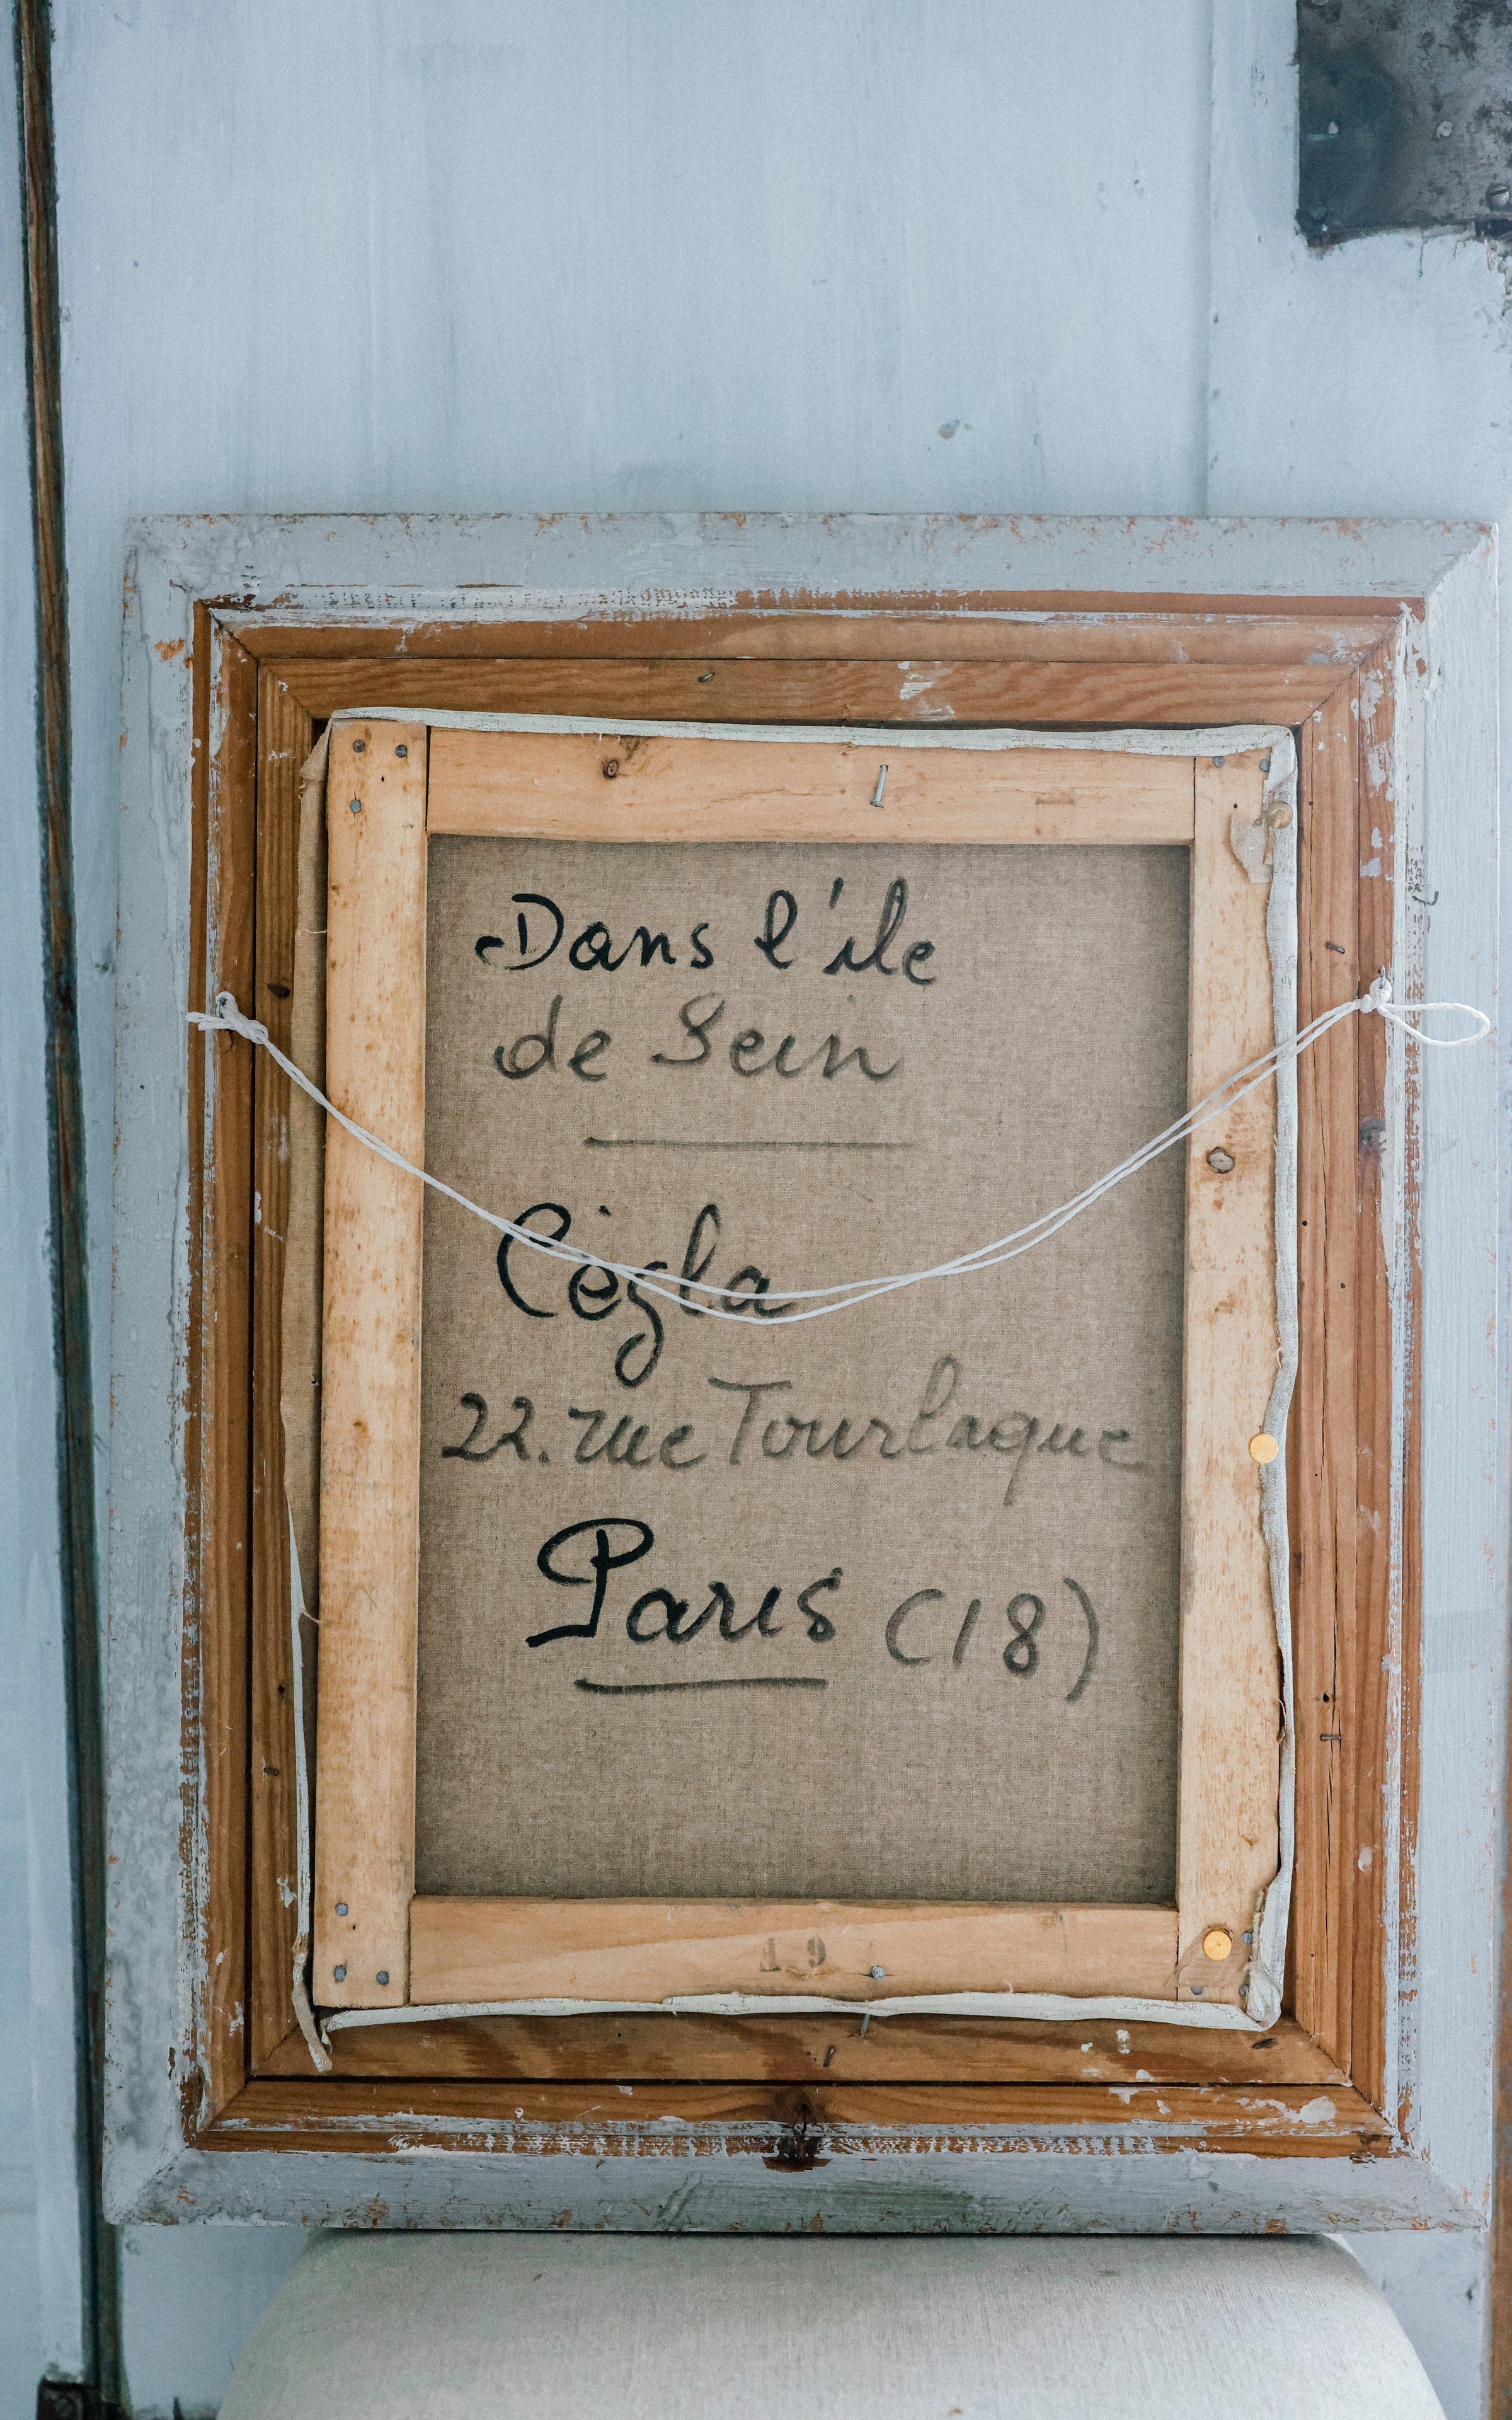 Dans l'ile
de Sein
Cègla
22. rue Tourlaque
Paris (18)
19